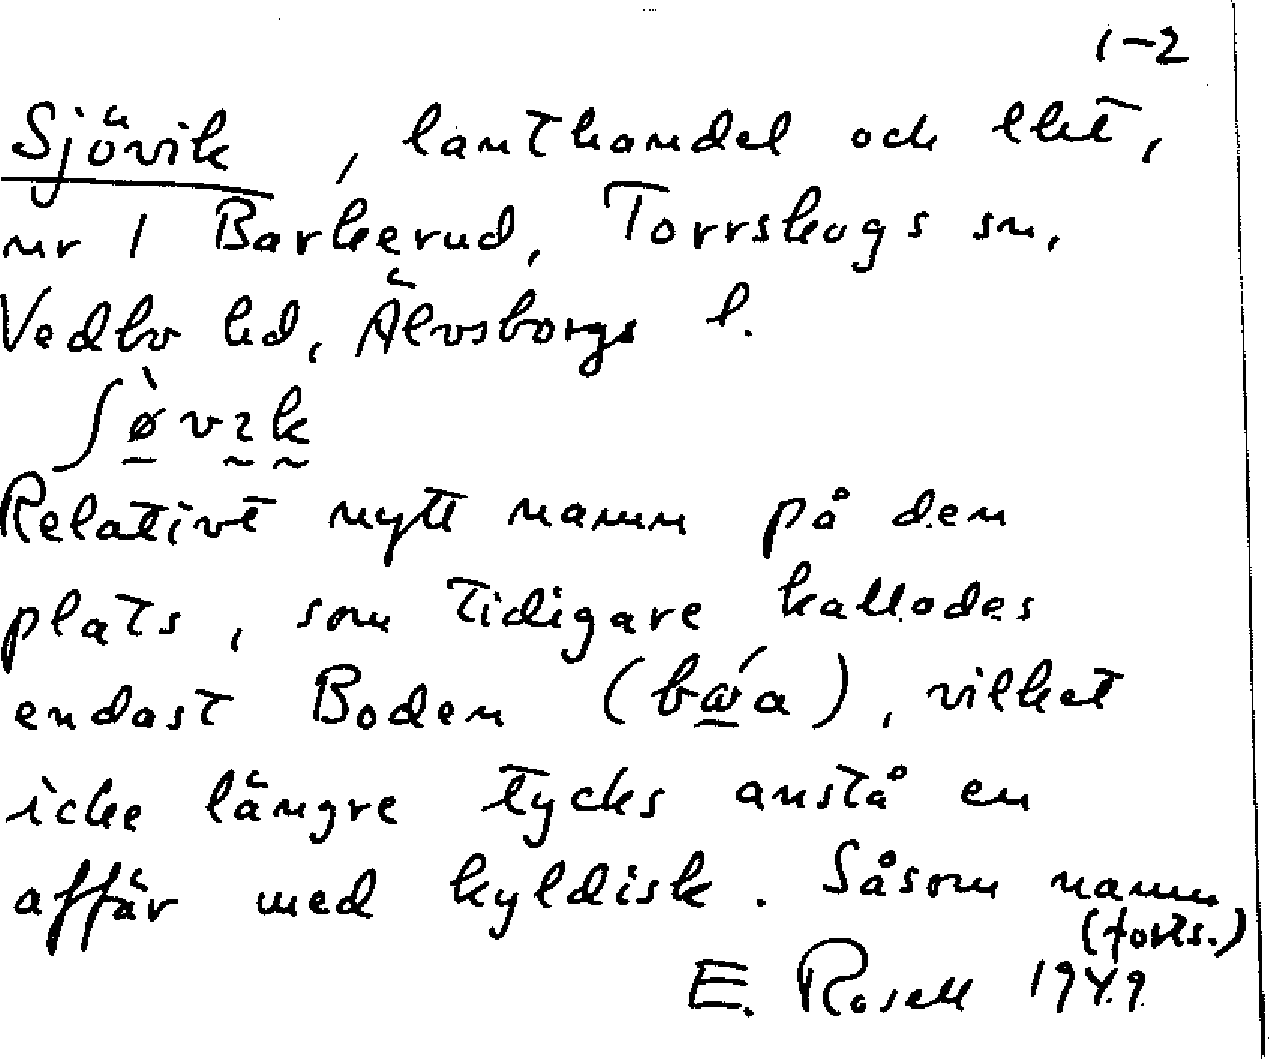 1-2
Sjövik, lanthandel och lht,
nr 1 Barkerud, Torrskogs sn,
Vedbo hd, Älvsborgs l.
ʃø̀vɪk
Relativt nytt namn på den
plats, som tidigare kallades
endast Boden (bǿa), vilket
icke längre tycks anstå en
affär med kyldisk. Såsom namn
(forts.)
E. Rosell 1949